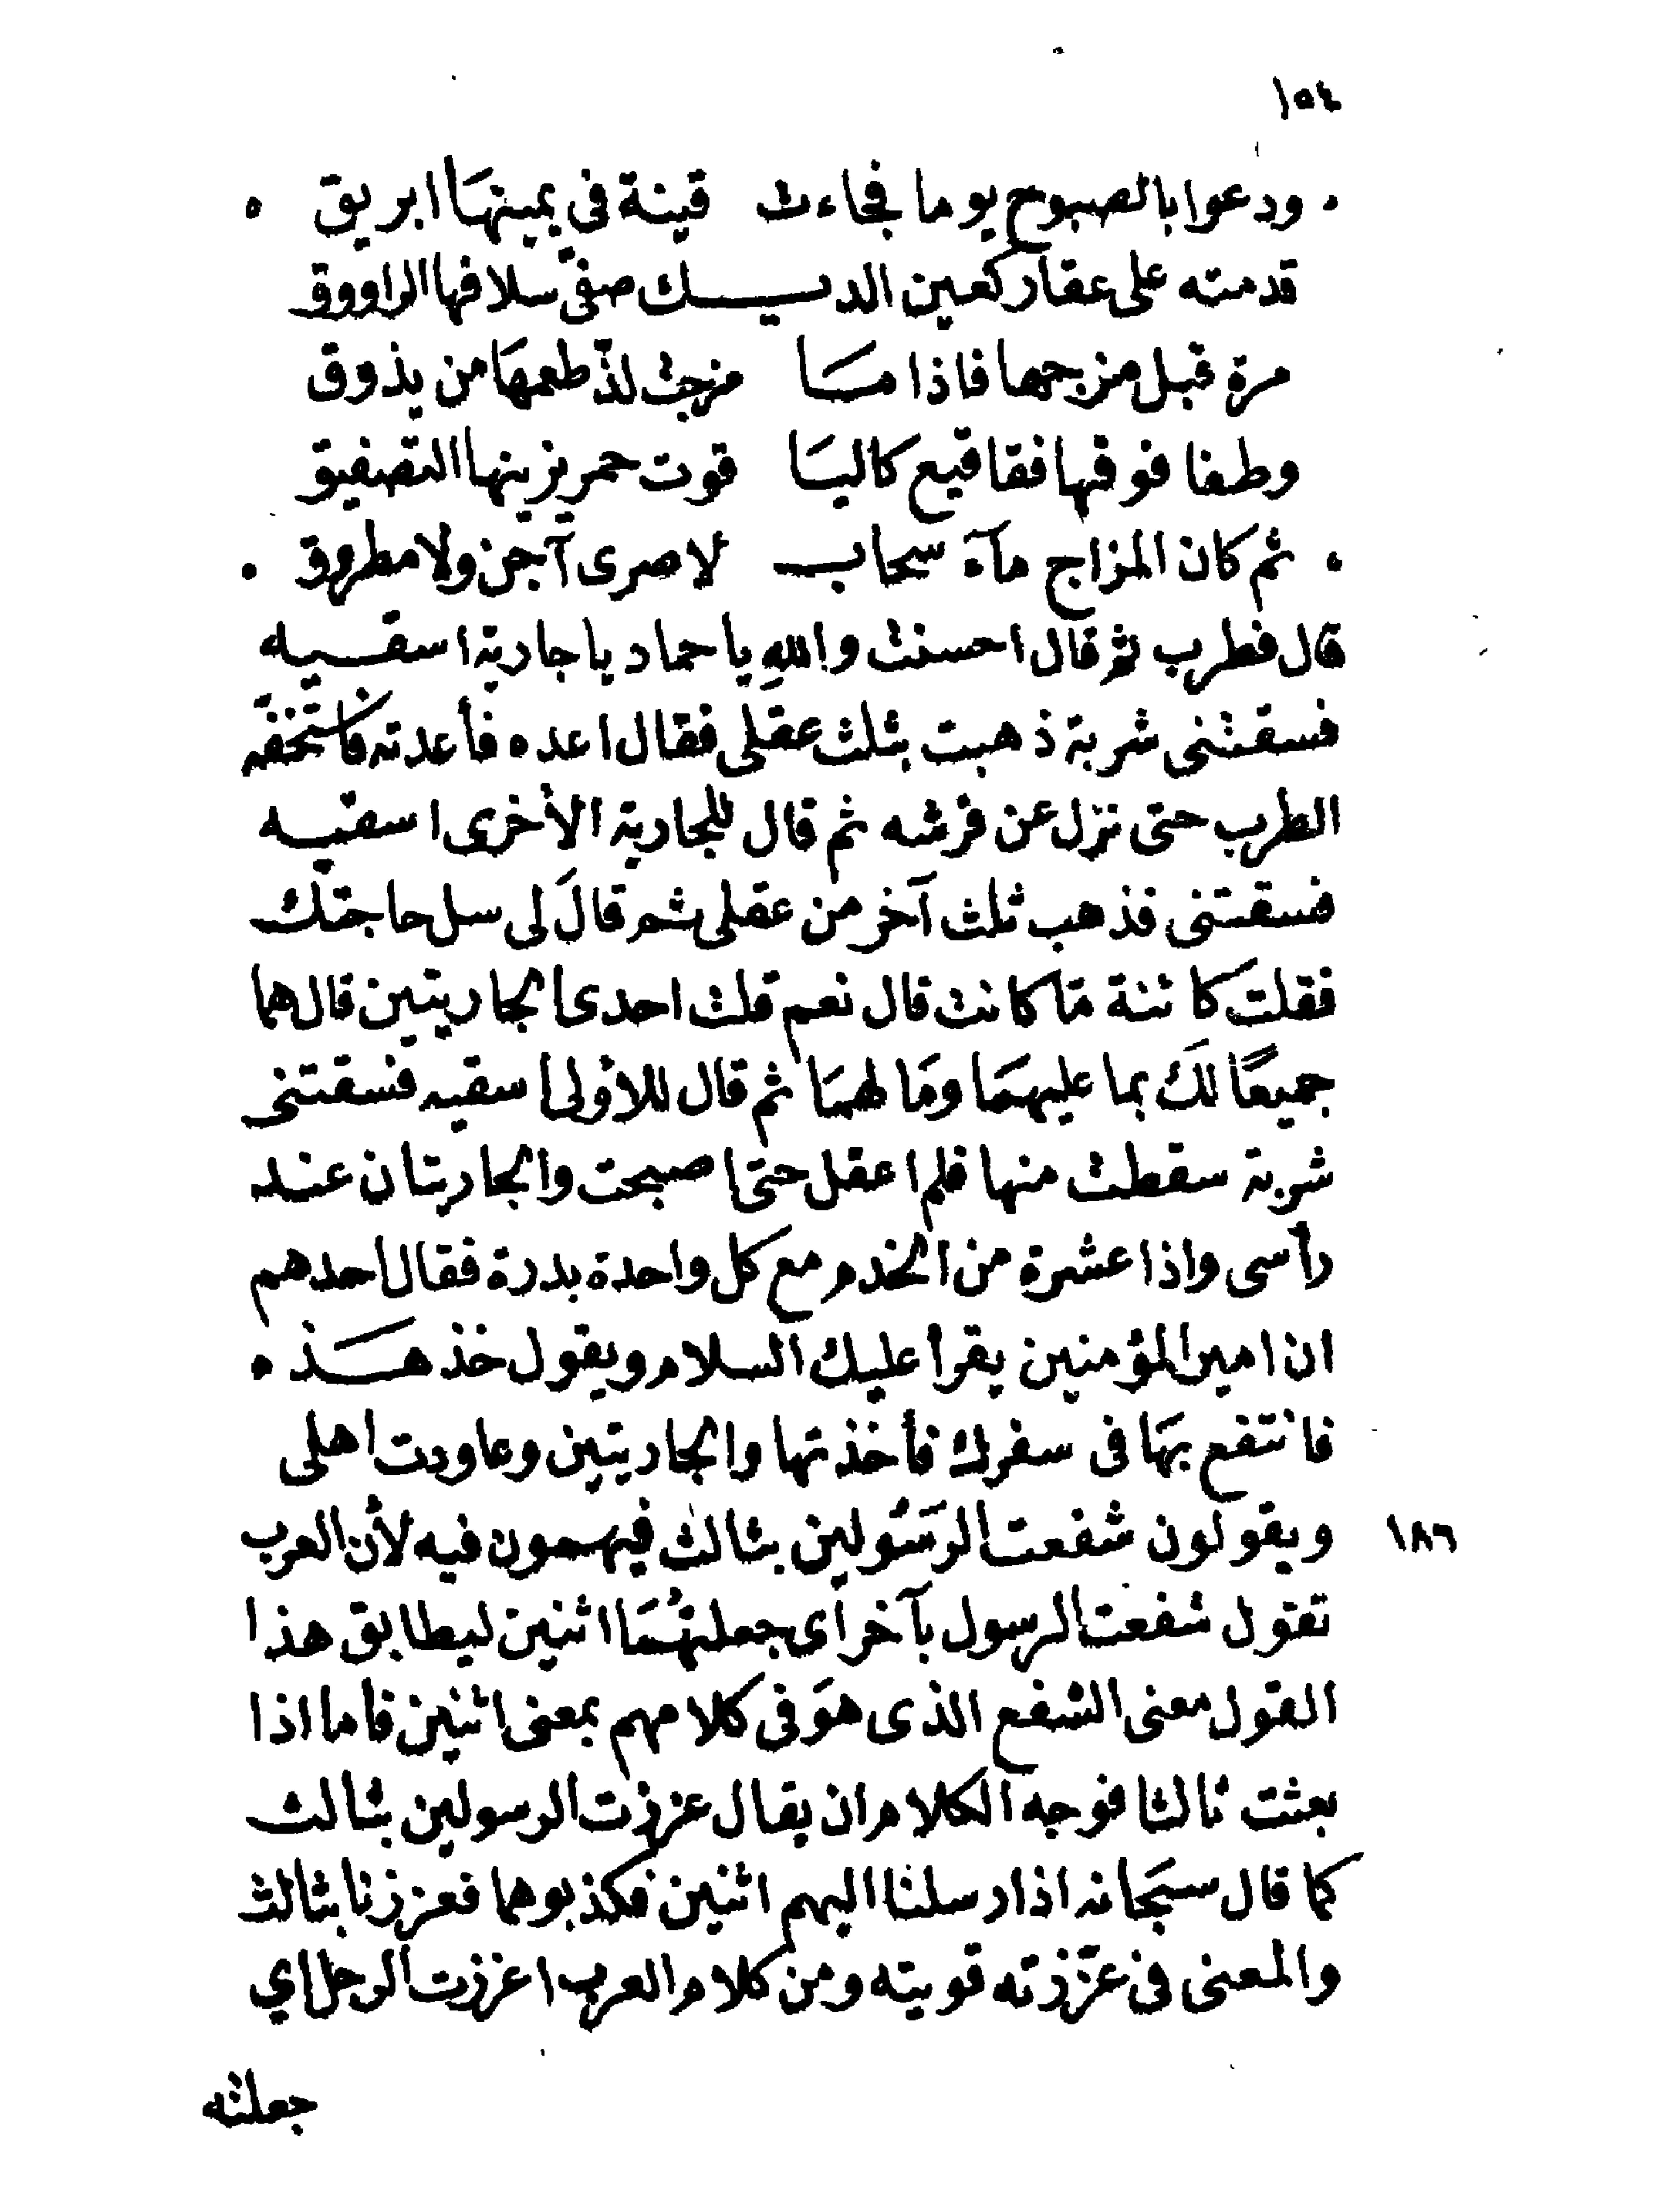 ١٥٤
. ودعوا بالصبوح يوما فجاءت قينة في يمينهَا ابريق .
قدمته على عقار كعين الديـــك صفّى سلافها الراووق
مرة قبل مزجها فاذا مـَـا مزجت لذّ طعمهَا من يذوق
وطفا فوقها فقاقيع كاليَا قوت حمر يزينها التصفيق
. ثم كان المزاج مآء سحاب لا صرى آجن ولا مطروق .
قال فطرب ثم قال احسنت والله يا حماد يا جارية اسقيه
فسقتنى شربة ذهبت بثلث عقلى فقال اعده فأعدته فاستخفّه
الطرب حتى نزل عن فرشه ثم قال للجارية الأخرى اسقيه
فسقتنى فذهب ثلث آخر من عقلى ثم قالَ لى سل حاجتك
فقلت كائنة مَا كانت قال نعم قلت احدى الجاريتين قال هما
جميعًا لكَ بما عليهمَا ومَا لهمَا ثم قال للاولى اسقيه فسقتنى
شربة سقطت منها فلم اعقل حتى اصبحت والجاريتان عند
رأسى واذا عشرة من الخدم مع كل واحدة بدرة فقال احدهم
ان امير المؤمنين يقرأ عليك السلام ويقول خذ هـَـذه
فانتفع بهَا فى سفرك فأخذتها والجاريتين وعاودت اهلى
١٨٦ ويقولون شفعت الرسَولين بثالث فيهمون فيه لأن العرب
تقول شفعت الرسول بآخر اى جعلتهُمَا اثنين ليطابق هذا
القول معنى الشفع الذى هوَ فى كلامهم بمعنى اثنين فاما اذا
بعثت ثالثا فوجه الكلام ان يقال عززت الرسولين بثالث
كما قال سبحَانه اذ ارسلنا اليهم اثنين فكذبوهما فعززنا بثالث
والمعنى فى عزّزته قويته ومن كلام العرب اعززت الرجل اي
جعلته